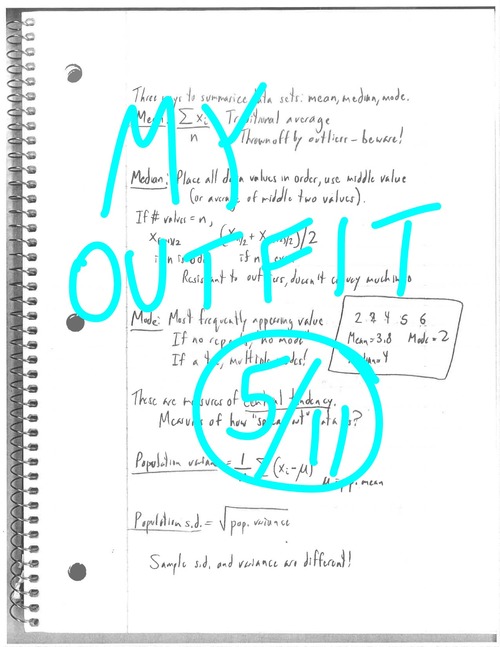 Three ways to summarize data sets: mean, median, mode.
Mean: Σ xᵢ / n Traditional average
Thrown off by outliers - beware!
Median: Place all data values in order, use middle value
(or average of middle two values).
If # values = n,
if n is odd if n even
Resistant to outliers, doesn't convey much info
Mode: Most frequently appearing value
If no repeats, no mode
If a tie, multiple modes!
2 2 4 5 6
Mean = 3.8 Mode = 2
Median = 4
These are measures of central tendency.
Measures of how "spread out" data is?
Population variance = 1/n Σ (xᵢ - μ)
μ = pop. mean
Population s.d. = √pop. variance
Sample s.d. and variance are different!
MY
OUTFIT
5/11